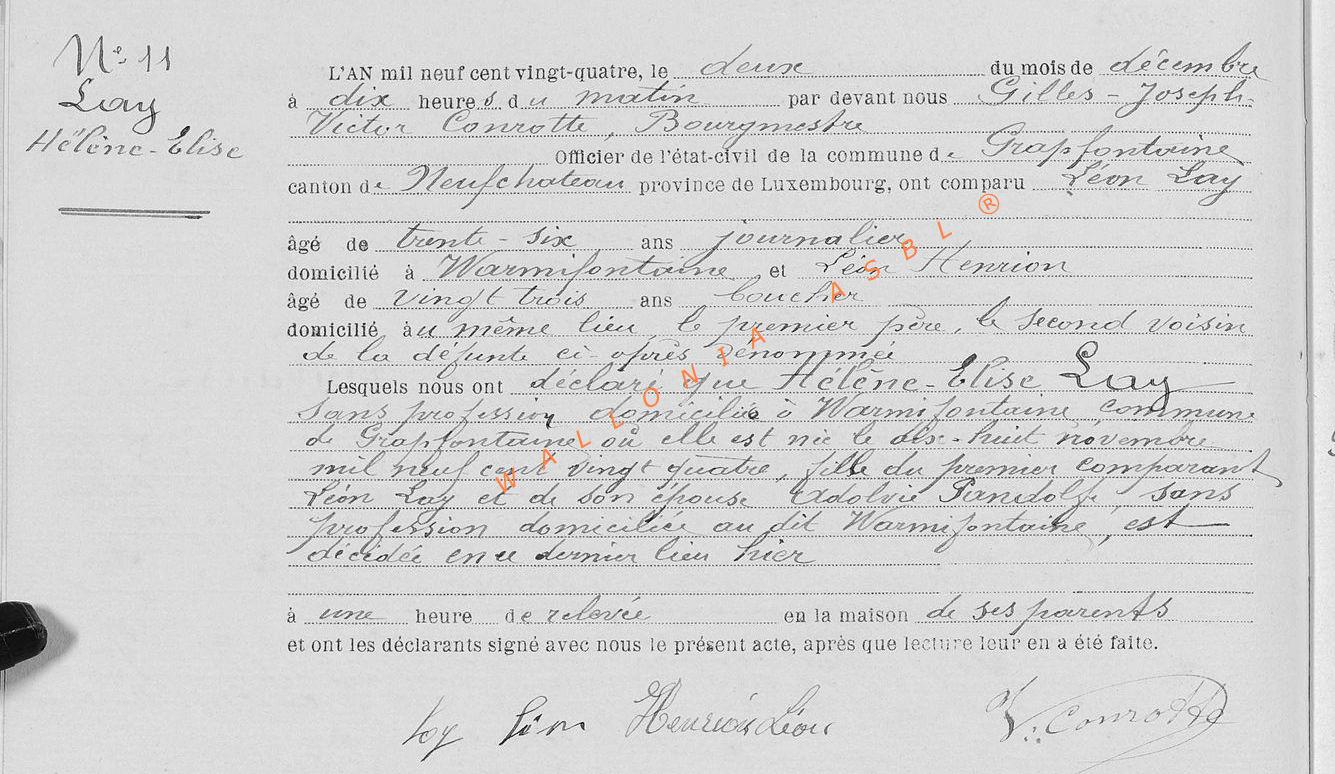 Nº 11
Lay
Hélène-Elise
L'AN mil neuf cent vingt-quatre, le deux du mois de décembre
à dix heures du matin par devant nous Gilles-Joseph-
Victor Conrotte, Bourgmestre
Officier de l'état-civil de la commune de Grapfontaine
canton de Neufchateau province de Luxembourg, ont comparu Léon Lay
âgé de trente-six ans journalier
domicilié à Warmifontaine et Léon Henrion
âgé de vingt trois ans boucher
domicilié au même lieu, le premier père, le second voisin
de la défunte ci-après dénommée
Lesquels nous ont déclaré que Hélène-Elise Lay
sans profession, domiciliée à Warmifontaine commune
de Grapfontaine où elle est née le dix-huit novembre
mil neuf cent vingt quatre, fille du premier comparant
Léon Lay et de son épouse Adolvie Pandolfi, sans
profession domiciliée au dit Warmifontaine, est
décédée en ce dernier lieu hier
à une heure de relevée en la maison de ses parents
et ont les déclarants signé avec nous le présent acte, après que lecture leur en a été faite.
Lay Léon Henrion Léon V. Conrotte
WALLONIA ASBL ®